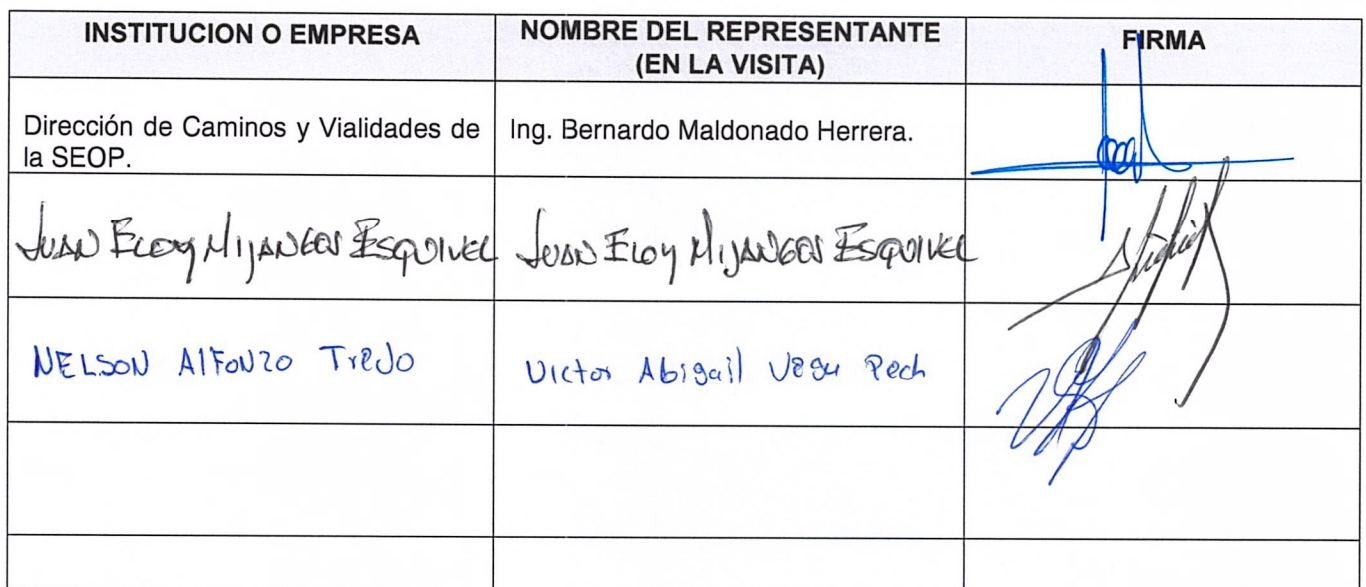 INSTITUCION O EMPRESA
NOMBRE DEL REPRESENTANTE
(EN LA VISITA)
FIRMA
Dirección de Caminos y Vialidades de
la SEOP.
Ing. Bernardo Maldonado Herrera.
JUAN ELOY MIJANGOS ESQUIVEL
JUAN ELOY MIJANGOS ESQUIVEL
NELSON AlFONZO TreJo
Victor Abigail Vega Pech